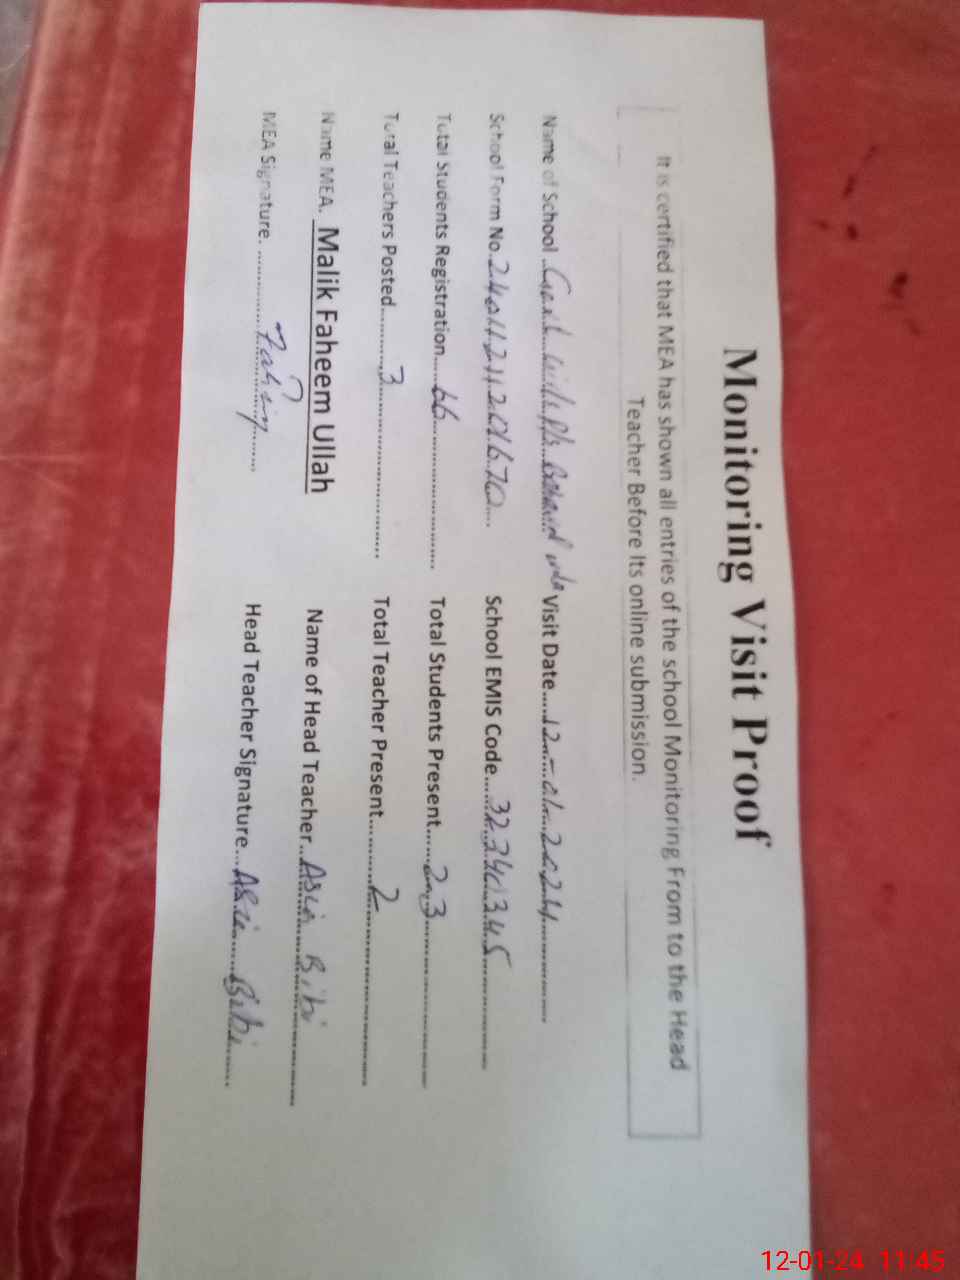 Monitoring Visit Proof
It is certified that MEA has shown all entries of the school Monitoring From to the Head
Teacher Before Its online submission.
Name of School Visit Date.....12-01-2024
School Form No. School EMIS Code......32340345
Total Students Registration......66 Total Students Present......23
Total Teachers Posted..........3 Total Teacher Present..........2
Name MEA. Malik Faheem Ullah Name of Head Teacher..Asia Bibi
MEA Signature. Head Teacher Signature...Asia Bibi
12-01-24 11:45